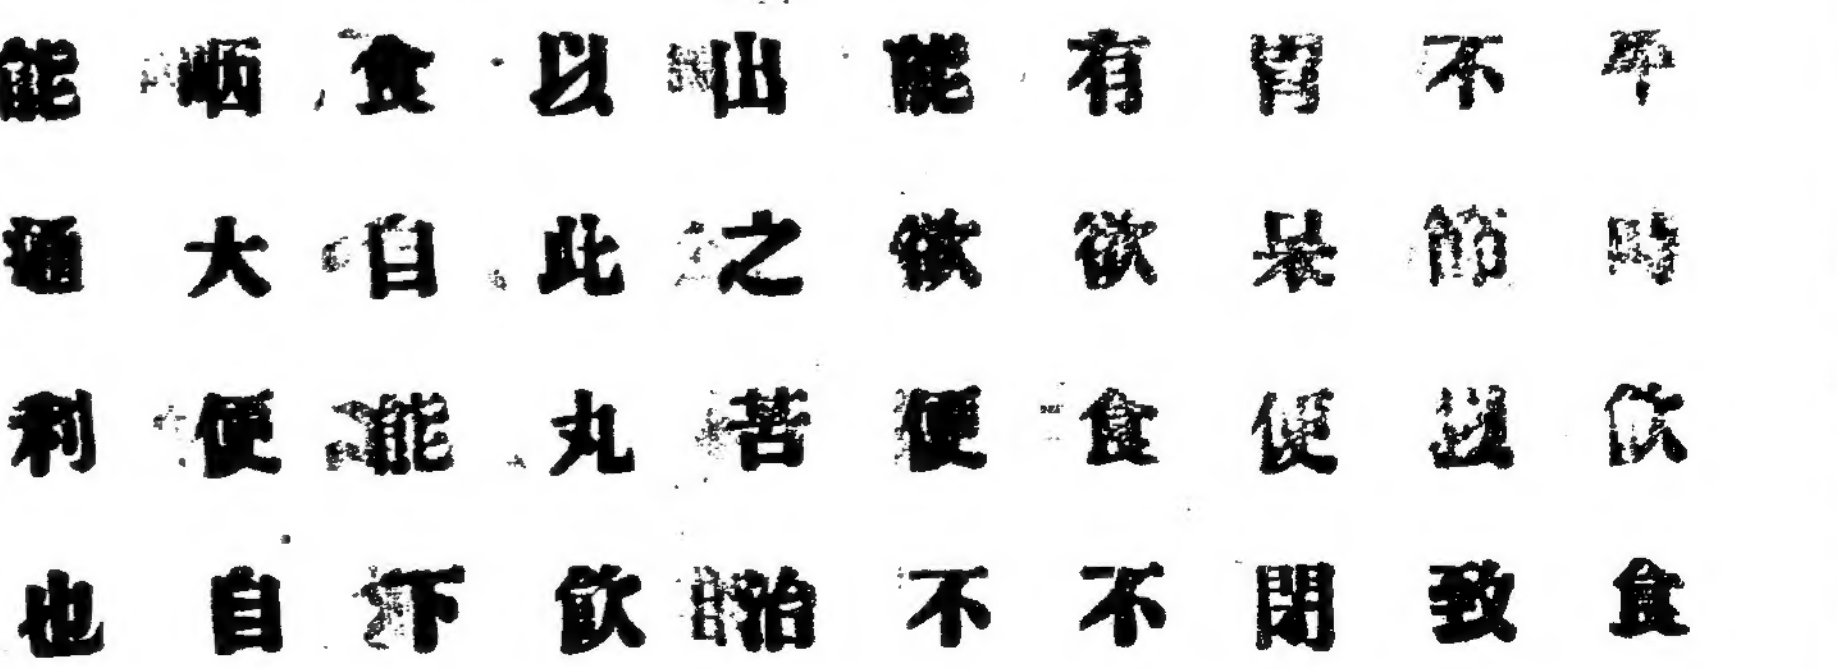 平時飲食
不節以致
胃呆便閉
有欲食不
能欲便不
出之苦治
以此丸飲
食自能下
而大便自
能通利也